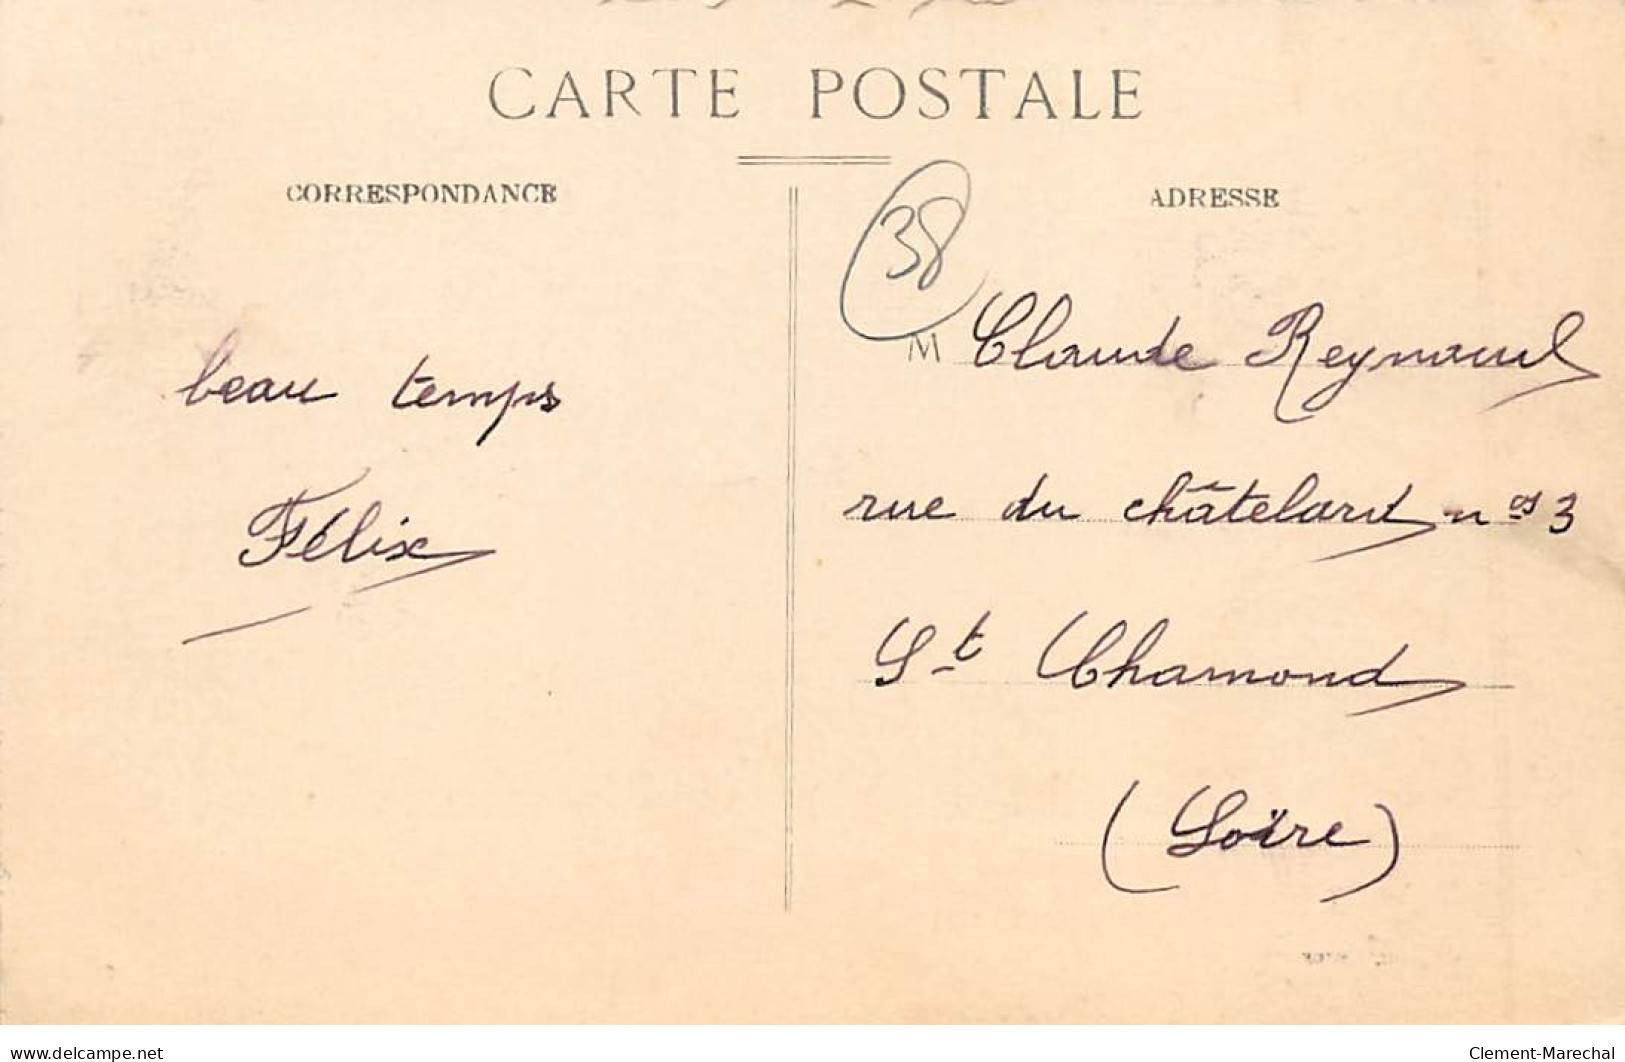 CARTE POSTALE
CORRESPONDANCE
ADRESSE
38
beau temps
Félix
M Claude Reynaud
rue du châtelard n os 3
St Chamond
(Loïre)
www.delcampe.net
Clement-Marechal